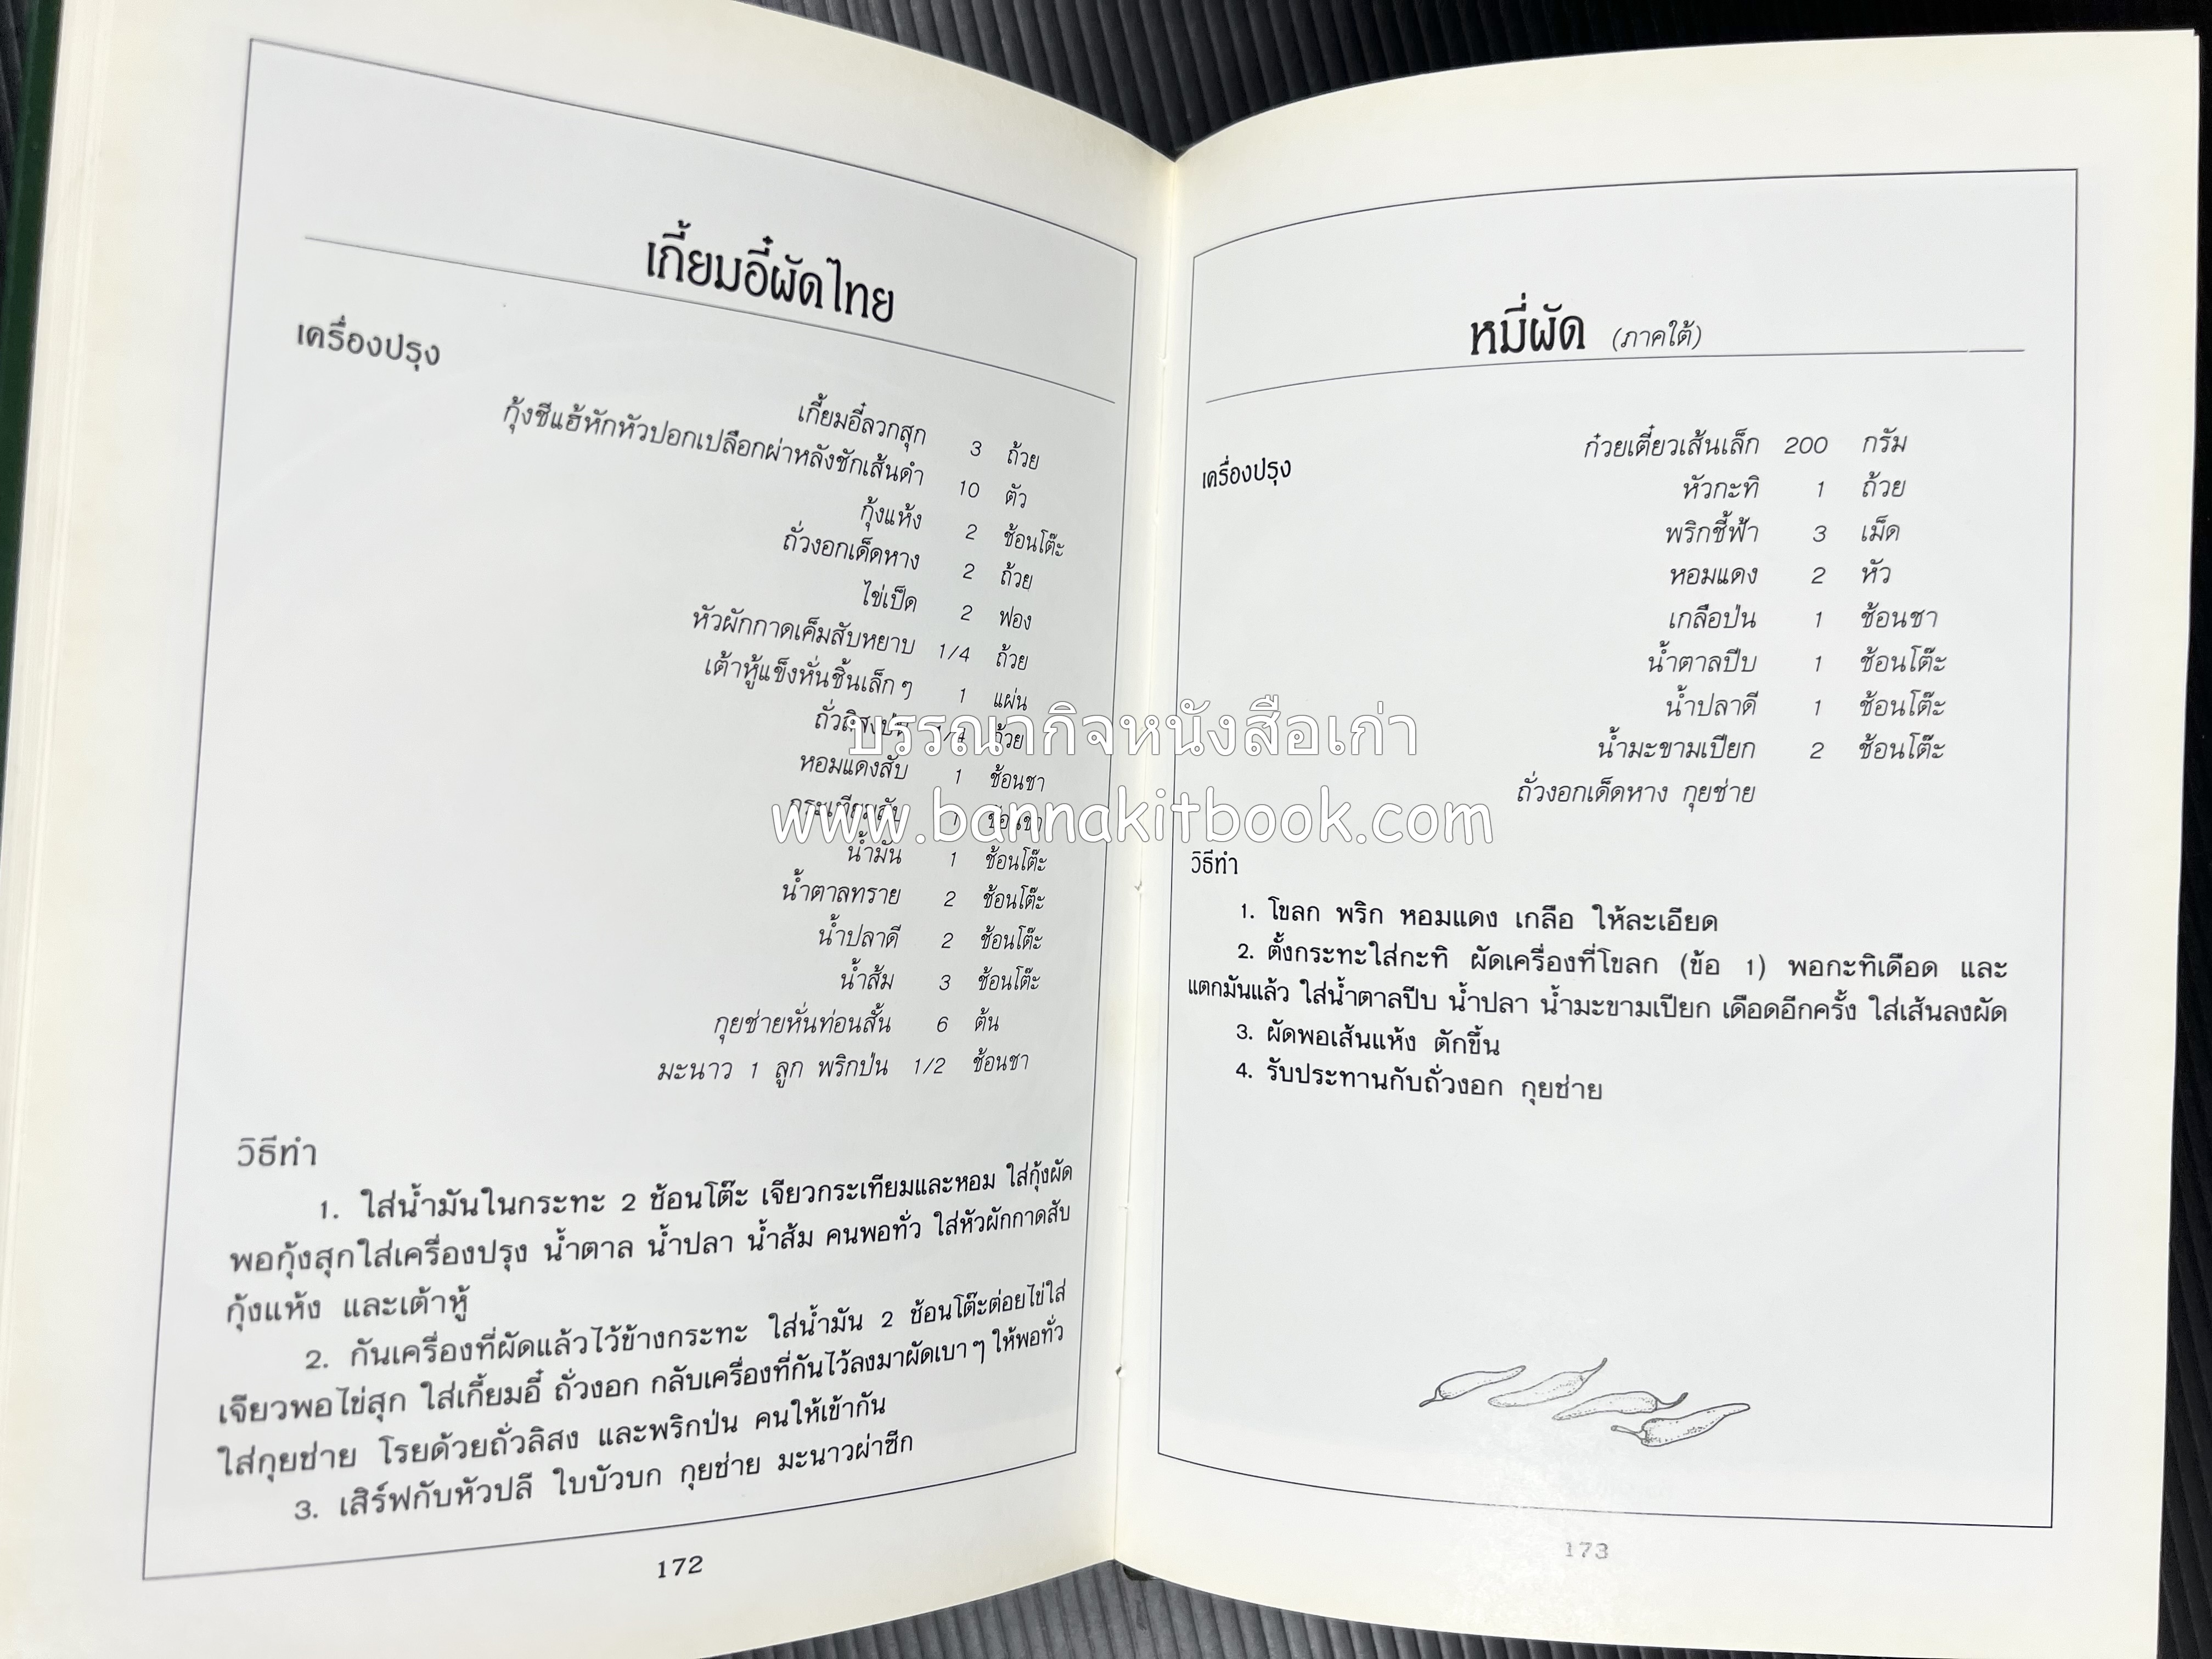 เกี้ยมอี๋ผัดไทย
เครื่องปรุง
เกี้ยมอี๋ลวกสุก 3 ถ้วย
กุ้งชีแฮ้หักหัวปอกเปลือกผ่าหลังชักเส้นดำ 10 ตัว
กุ้งแห้ง 2 ช้อนโต๊ะ
ถั่วงอกเด็ดหาง 2 ถ้วย
ไข่เป็ด 2 ฟอง
หัวผักกาดเค็มสับหยาบ 1/4 ถ้วย
เต้าหู้แข็งหั่นชิ้นเล็กๆ 1 แผ่น
ถั่วลิสงป่น 1/4 ถ้วย
หอมแดงสับ 1 ช้อนชา
กระเทียมสับ 1 ช้อนชา
น้ำมัน 1 ช้อนโต๊ะ
น้ำตาลทราย 2 ช้อนโต๊ะ
น้ำปลาดี 2 ช้อนโต๊ะ
น้ำส้ม 3 ช้อนโต๊ะ
กุยช่ายหั่นท่อนสั้น 6 ต้น
มะนาว 1 ลูก พริกป่น 1/2 ช้อนชา
วิธีทำ
1. ใส่น้ำมันในกระทะ 2 ช้อนโต๊ะ เจียวกระเทียมและหอม ใส่กุ้งผัด
พอกุ้งสุกใส่เครื่องปรุง น้ำตาล น้ำปลา น้ำส้ม คนพอทั่ว ใส่หัวผักกาดสับ
กุ้งแห้ง และเต้าหู้
2. กันเครื่องที่ผัดแล้วไว้ข้างกระทะ ใส่น้ำมัน 2 ช้อนโต๊ะต่อยไข่ใส่
เจียวพอไข่สุก ใส่เกี้ยมอี๋ ถั่วงอก กลับเครื่องที่กันไว้ลงมาผัดเบาๆ ให้พอทั่ว
ใส่กุยช่าย โรยด้วยถั่วลิสง และพริกป่น คนให้เข้ากัน
3. เสิร์ฟกับหัวปลี ใบบัวบก กุยช่าย มะนาวผ่าซีก
172
หมี่ผัด (ภาคใต้)
เครื่องปรุง
ก๋วยเตี๋ยวเส้นเล็ก 200 กรัม
หัวกะทิ 1 ถ้วย
พริกชี้ฟ้า 3 เม็ด
หอมแดง 2 หัว
เกลือป่น 1 ช้อนชา
น้ำตาลปีบ 1 ช้อนโต๊ะ
น้ำปลาดี 1 ช้อนโต๊ะ
น้ำมะขามเปียก 2 ช้อนโต๊ะ
ถั่วงอกเด็ดหาง กุยช่าย
วิธีทำ
1. โขลก พริก หอมแดง เกลือ ให้ละเอียด
2. ตั้งกระทะใส่กะทิ ผัดเครื่องที่โขลก (ข้อ 1) พอกะทิเดือด และ
แตกมันแล้ว ใส่น้ำตาลปีบ น้ำปลา น้ำมะขามเปียก เดือดอีกครั้ง ใส่เส้นลงผัด
3. ผัดพอเส้นแห้ง ตักขึ้น
4. รับประทานกับถั่วงอก กุยช่าย
173
บรรณากิจหนังสือเก่า
www.bannakitbook.com